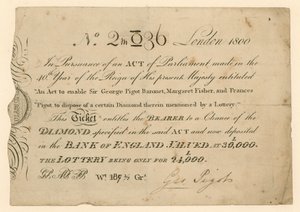 No. 2m036 London 1800
In Pursuance of an ACT of Parliament made in the
40th Year of the Reign of His present Majesty entituled
"An Act to enable Sir George Pigot Baronet, Margaret Fisher, and Frances
"Pigot, to dispose of a certain Diamond therein mentioned by a Lottery."
This Ticket entitles the BEARER to a Chance of the
DIAMOND specified in the said ACT and now deposited
in the BANK OF ENGLAND VALUED AT £30,000.
THE LOTTERY BEING ONLY FOR £24,000.
Wt. 187½ Grs.
Geo Pigot